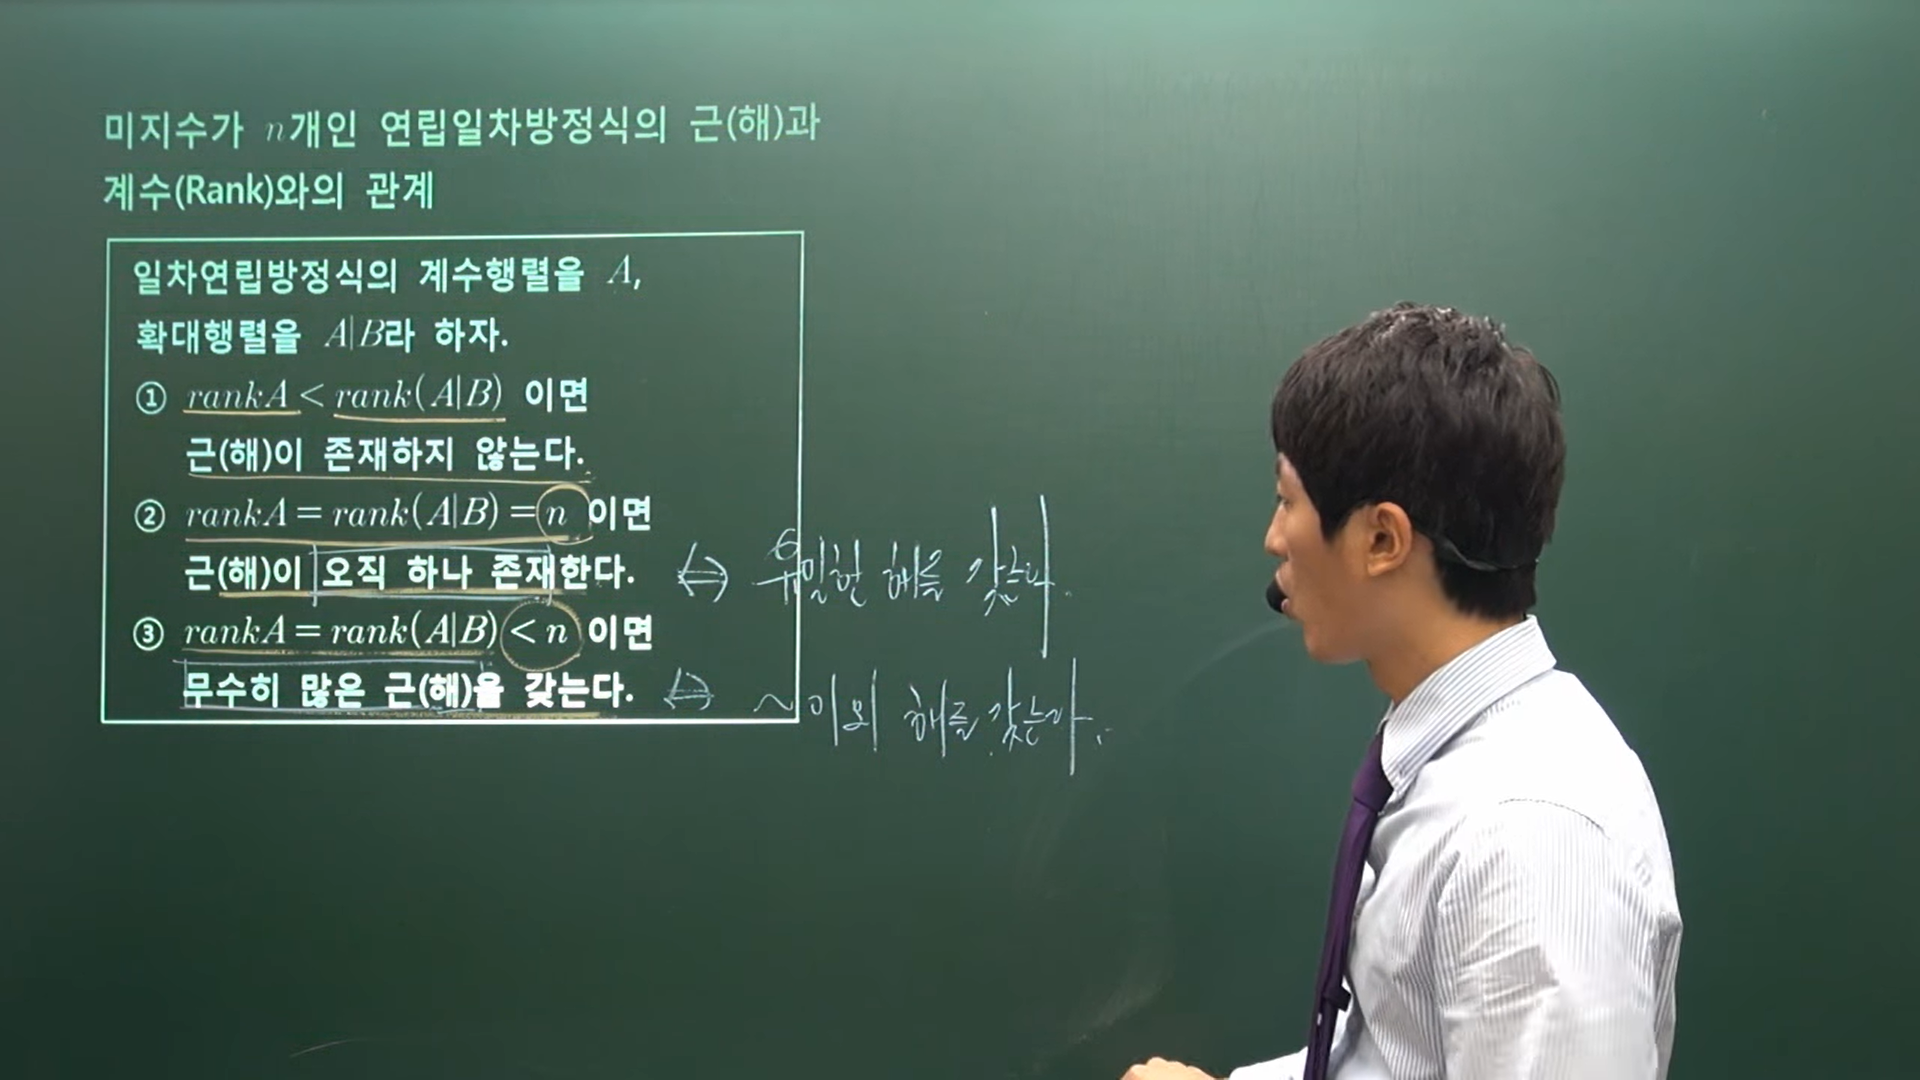 미지수가 n개인 연립일차방정식의 근(해)과
계수(Rank)와의 관계
일차연립방정식의 계수행렬을 A,
확대행렬을 A|B라 하자.
① rankA < rank(A|B) 이면
근(해)이 존재하지 않는다.
② rankA = rank(A|B) = n 이면
근(해)이 오직 하나 존재한다. ⇔ 유일한 해를 갖는다.
③ rankA = rank(A|B) < n 이면
무수히 많은 근(해)을 갖는다. ⇔ ~이외 해를 갖는다.